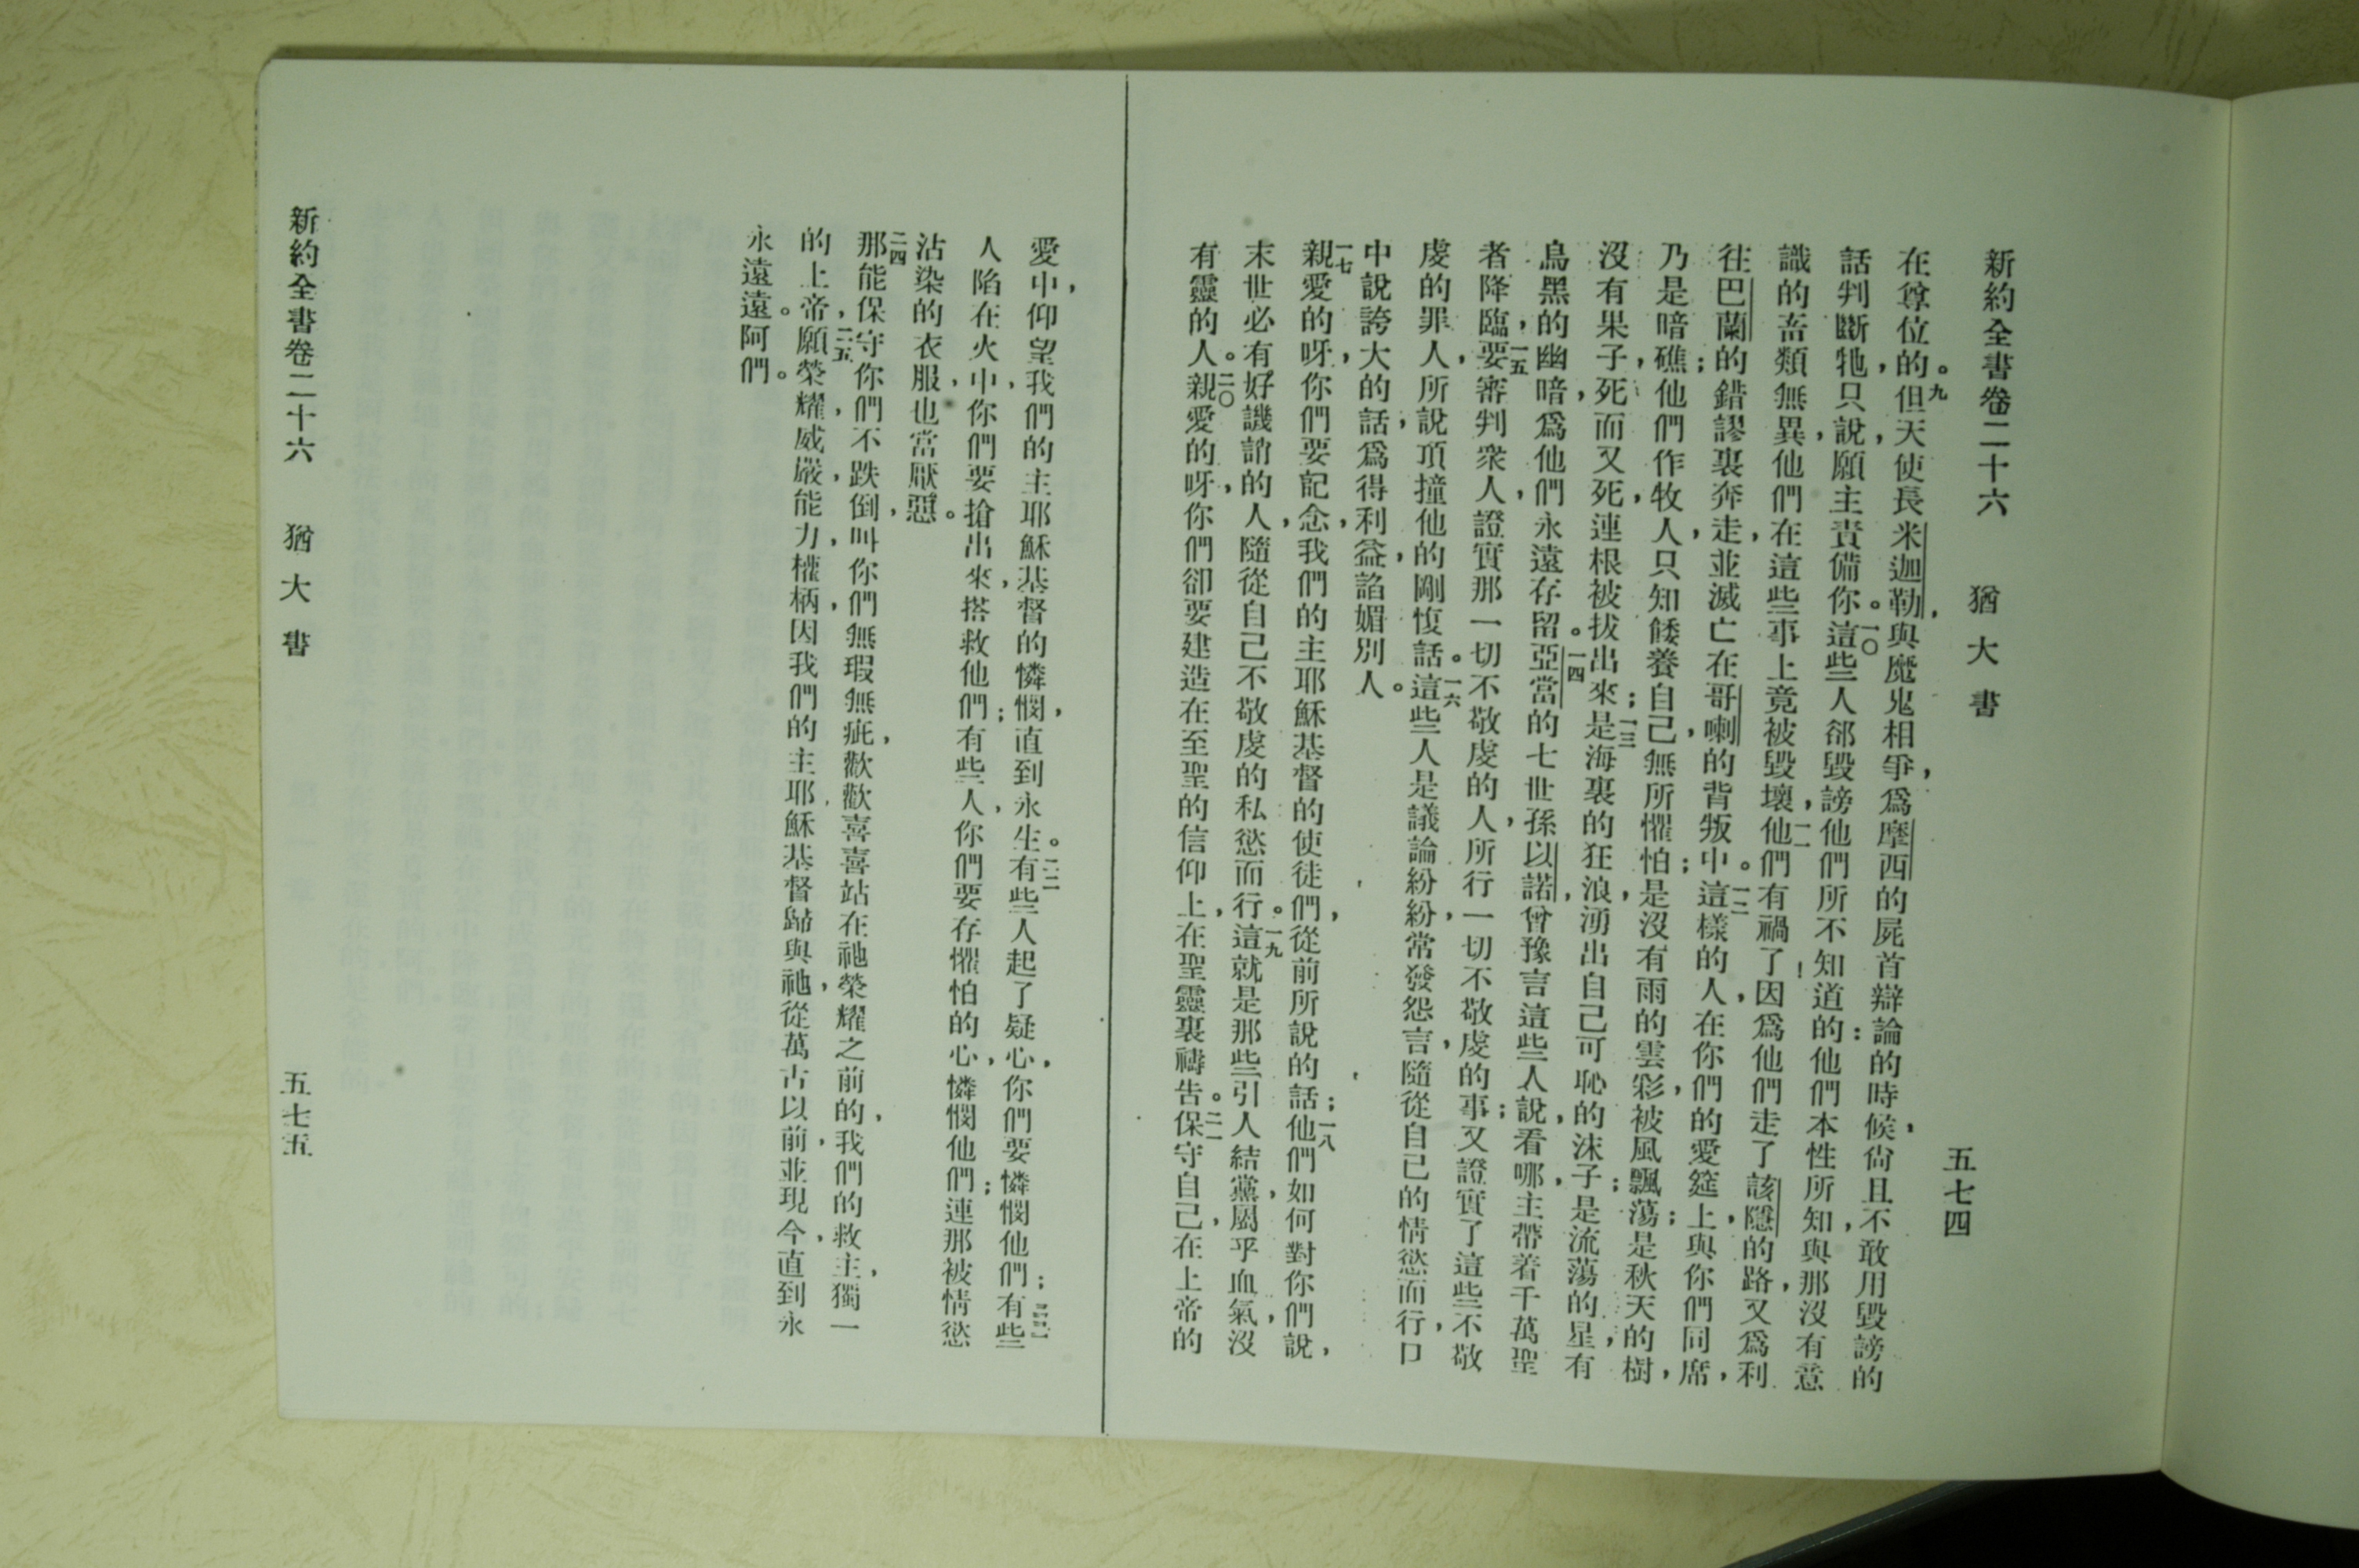 新約全書卷二十六　猶大書　五七四
在尊位的。九但天使長米迦勒，與魔鬼相爭，爲摩西的屍首辯論的時候，尙且不敢用毀謗的
話判斷牠，只說，願主責備你。一〇這些人郤毀謗他們所不知道的：他們本性所知，與那沒有意
識的畜類無異，他們在這些事上竟被毀壞，一一他們有禍了！因爲他們走了該隱的路，又爲利
往巴蘭的錯謬裏奔走，並滅亡在哥喇的背叛中。一二這樣的人，在你們的愛筵上，與你們同席，
乃是暗礁；他們作牧人，只知餧養自己，無所懼怕；是沒有雨的雲彩，被風飄蕩；是秋天的樹，
沒有果子，死而又死，連根被拔出來；一三是海裏的狂浪，湧出自己可恥的沫子；是流蕩的星，有
鳥黑的幽暗，爲他們永遠存留。一四亞當的七世孫以諾，曾豫言這些人說，看哪，主帶着千萬聖
者降臨，一五要審判衆人，證實那一切不敬虔的人，所行一切不敬虔的事；又證實了這些不敬
虔的罪人，所說頂撞他的剛愎話。一六這些人是議論紛紛，常發怨言，隨從自己的情慾而行，口
中說誇大的話，爲得利益，諂媚別人。
一七親愛的呀，你們要記念，我們的主耶穌基督的使徒們，從前所說的話；一八他們如何對你們說，
末世必有好譏誚的人，隨從自己不敬虔的私慾而行。一九這就是那些引人結黨，屬乎血氣，沒
有靈的人。二〇親愛的呀，你們卻要建造在至聖的信仰上，在聖靈裏禱告。二一保守自己，在上帝的
愛中，仰望我們的主耶穌基督的憐憫，直到永生。二二有些人起了疑心，你們要憐憫他們；二三有些
人陷在火中，你們要搶出來，搭救他們；有些人，你們要存懼怕的心，憐憫他們；連那被情慾
沾染的衣服，也當厭惡。
二四那能保守你們不跌倒，叫你們無瑕無疵，歡歡喜喜站在祂榮耀之前的，我們的救主，獨一
的上帝，二五願榮耀，威嚴，能力，權柄，因我們的主耶穌基督歸與祂，從萬古以前，並現今，直到永
永遠遠。阿們。
新約全書卷二十六　猶大書　五七五